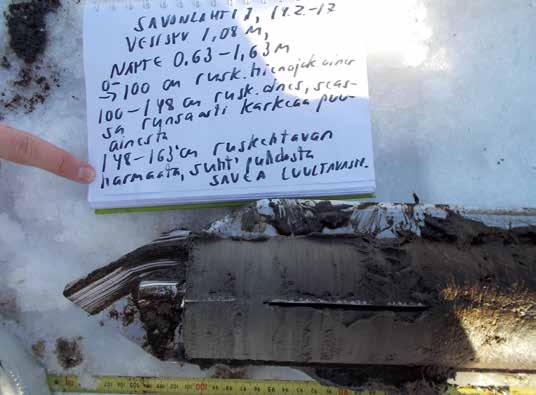 SAVONLAHTI 7, 14.2.-17
VESISYV 1,08 M,
NÄYTE 0.63-1,63 M
0-
→100 cm rusk. hienojak. aines
100-148 cm rusk. aines, seas-
sa runsaasti karkeaa puu-
ainesta
148-163 cm ruskehtavan
harmaata, suht' puhdasta
SAVEA LUULTAVASTI.
100